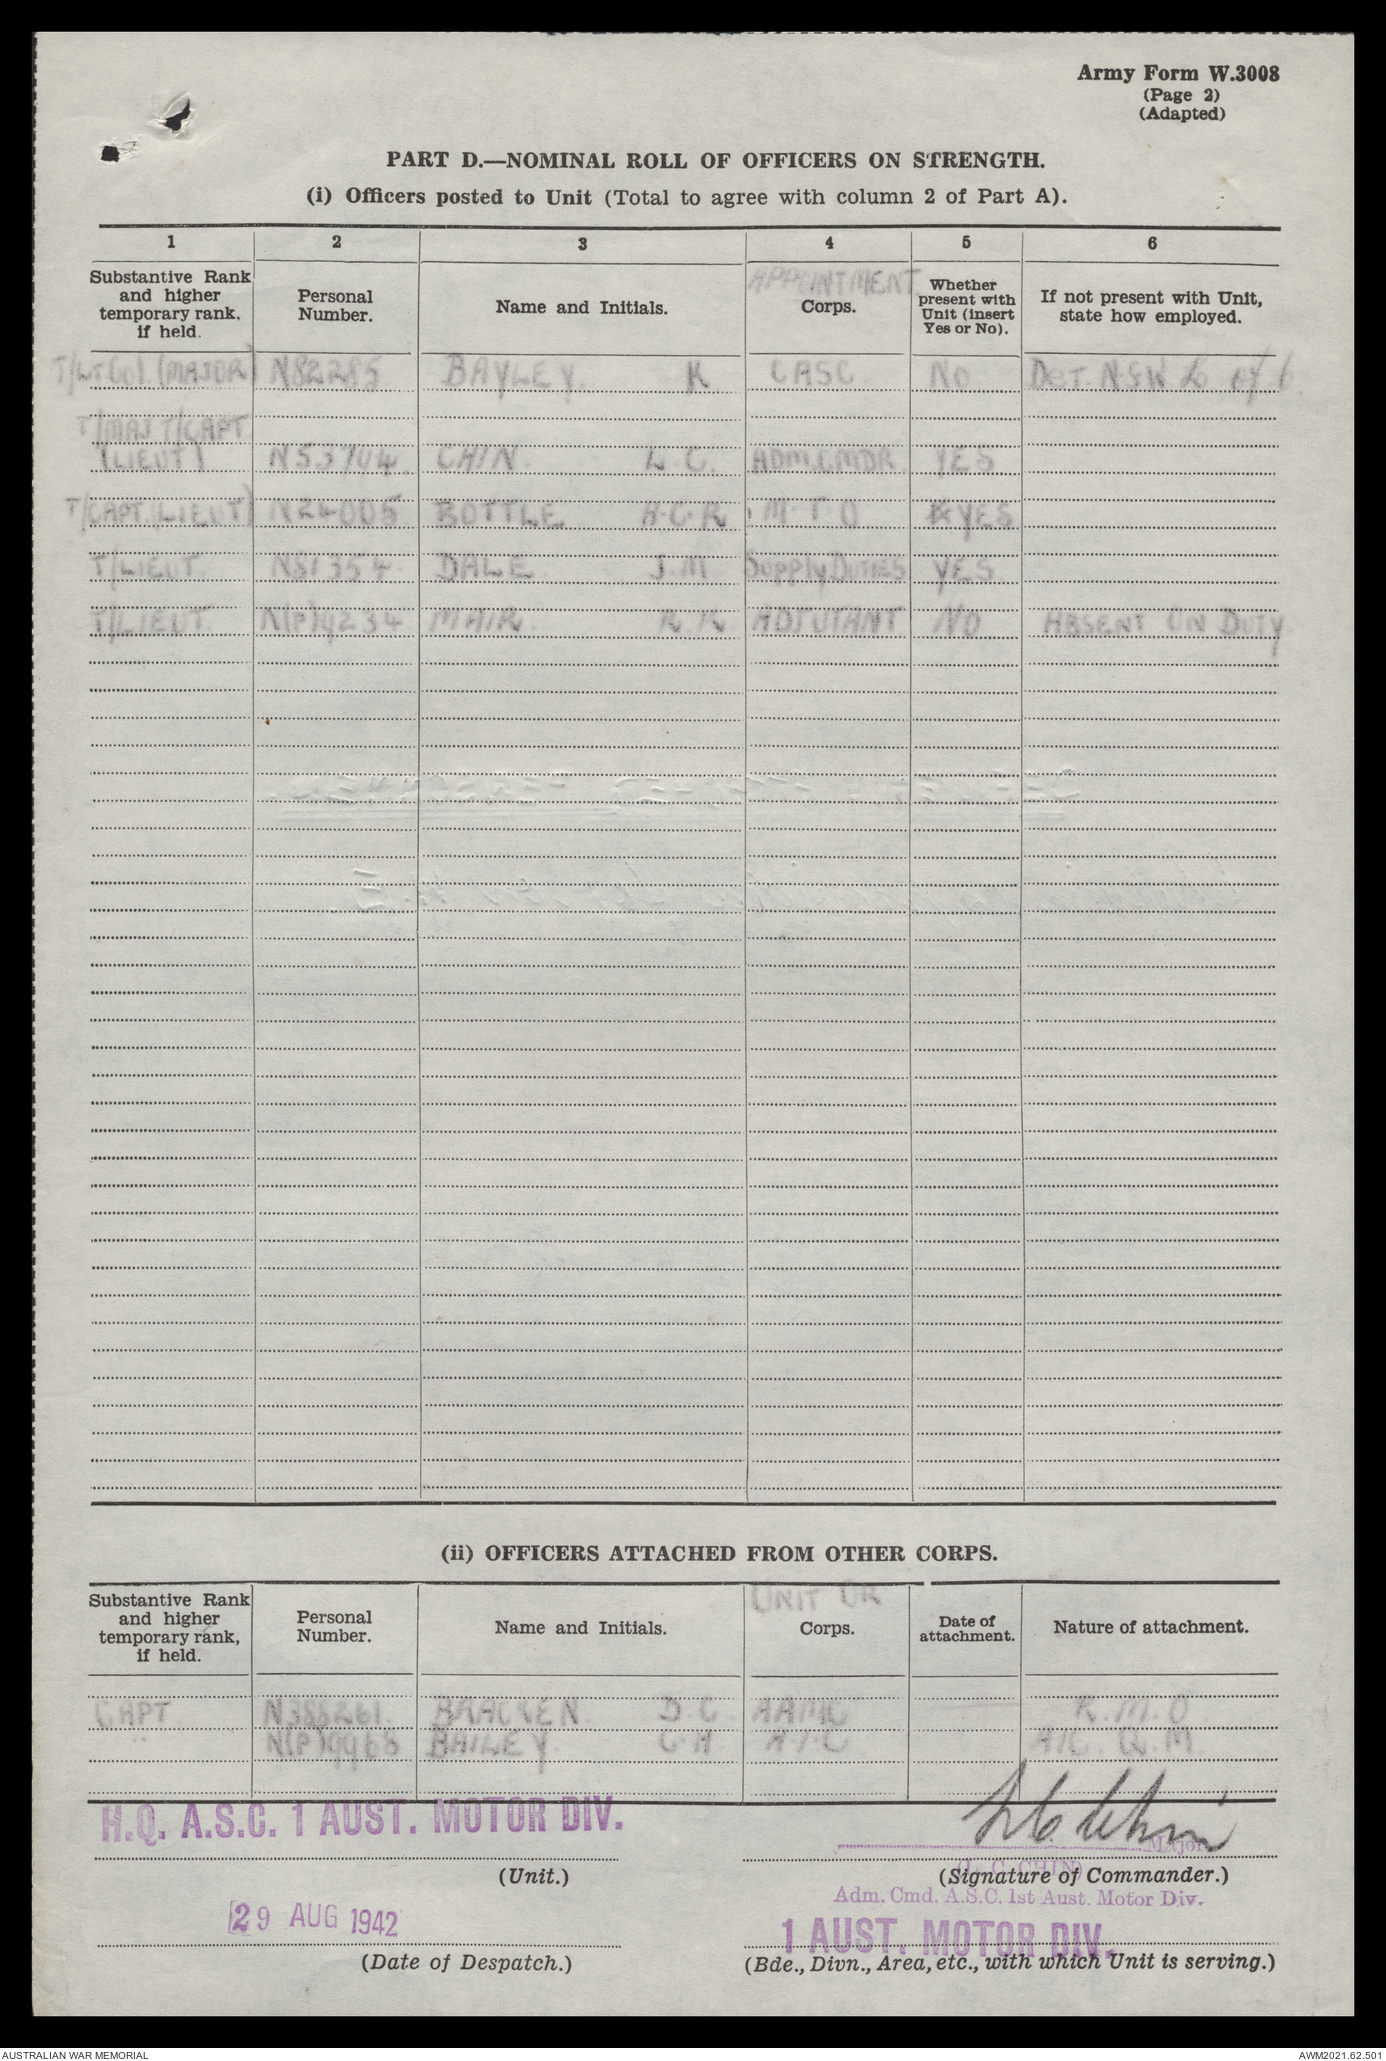 Army Form W.3008
(Page 2)
(Adapted)
PART D.—NOMINAL ROLL OF OFFICERS ON STRENGTH.
(i) Officers posted to Unit (Total to agree with column 2 of Part A).
1 2 3 4 5 6
Substantive Rank and higher temporary rank, if held.
Personal Number.
Name and Initials.
APPOINTMENT
Corps.
Whether present with Unit (insert Yes or No).
If not present with Unit, state how employed.
T/LT Col. (MAJOR) N82285 BAYLEY. K CASC NO DET. N.S.W L of C
T/MAJ T/CAPT.
(LIEUT) N53704. CHIN. L.C. ADM. CMDR. YES
T/CAPT. (LIEUT) N24005 BOTTLE H.G.R. M.T.O YES
T/LIEUT. N81354 DALE. J.M. Supply Duties YES
T/LIEUT. N(P)9234 MAIR. R.K ADJUTANT NO ABSENT ON DUTY.
(ii) OFFICERS ATTACHED FROM OTHER CORPS.
Substantive Rank and higher temporary rank, if held.
Personal Number.
Name and Initials.
UNIT OR
Corps.
Date of attachment.
Nature of attachment.
CAPT N388261. BRACKEN. D.C. AAMC R.M.O
" N(P)9968 BAILEY C.H A.I.C A/C. Q.M
H.Q. A.S.C. 1 AUST. MOTOR DIV.
(Unit.)
L C Chin Major
(L. C. CHIN)
(Signature of Commander.)
Adm. Cmd. A.S.C. 1st Aust. Motor Div.
29 AUG 1942
(Date of Despatch.)
1 AUST. MOTOR DIV.
(Bde., Divn., Area, etc., with which Unit is serving.)
AUSTRALIAN WAR MEMORIAL
AWM2021.62.501